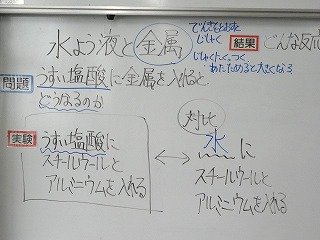 水よう液と金属
でんきをとおす
じしゃく
じしゃくにつく
あたためると大きくなる
結果 どんな反応
問題 うすい塩酸に金属を入れると
どうなるのか
実験 うすい塩酸に
スチールウールと
アルミニウムを入れる
↔
対比
水に
スチールウールと
アルミニウムを入れる